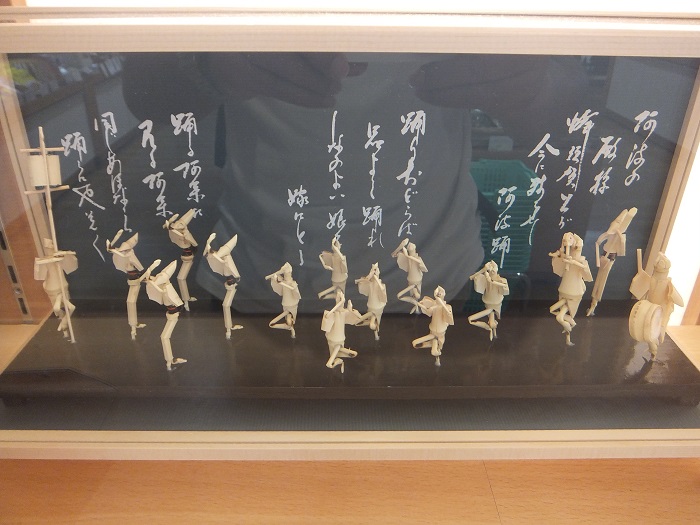 阿波の
殿様
蜂須賀さまが
今に残せし
阿波踊
踊りおどらば
品よく踊れ
しなのよい娘を
嫁にとる
踊る阿呆に
見る阿呆
同じあほなら
踊らにゃそんそん